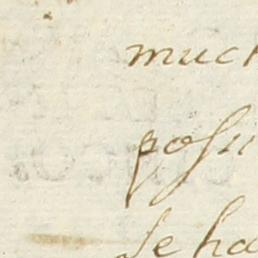 much
posu
se ha